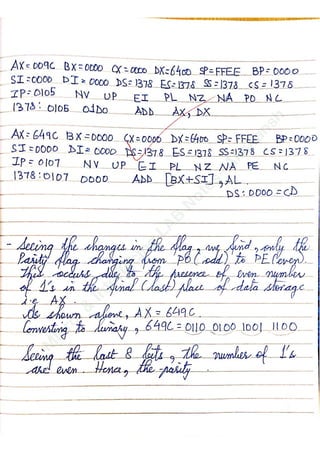 AX=009C BX=0000 CX=0000 DX=6400 SP=FFEE BP=0000
SI=0000 DI=0000 DS=1378 ES=1378 SS=1378 CS=1378
IP=0105 NV UP EI PL NZ NA PO NC
1378:0105 01D0 ADD AX,DX
AX=649C BX=0000 CX=0000 DX=6400 SP=FFEE BP=0000
SI=0000 DI=0000 DS=1378 ES=1378 SS=1378 CS=1378
IP=0107 NV UP EI PL NZ NA PE NC
1378:0107 0000 ADD [BX+SI],AL
DS:0000=CD
- Seeing the changes in the flag, we find, only the
Parity flag changing from PO (odd) to PE (even).
This occurs due to the presence of even number
of 1's in the final (last) place of data storage
i.e AX.
As shown above, AX = 649C.
Converting to binary, 649C = 0110 0100 1001 1100
Seeing the last 8 bits, the number of 1's
are even. Hence, the parity